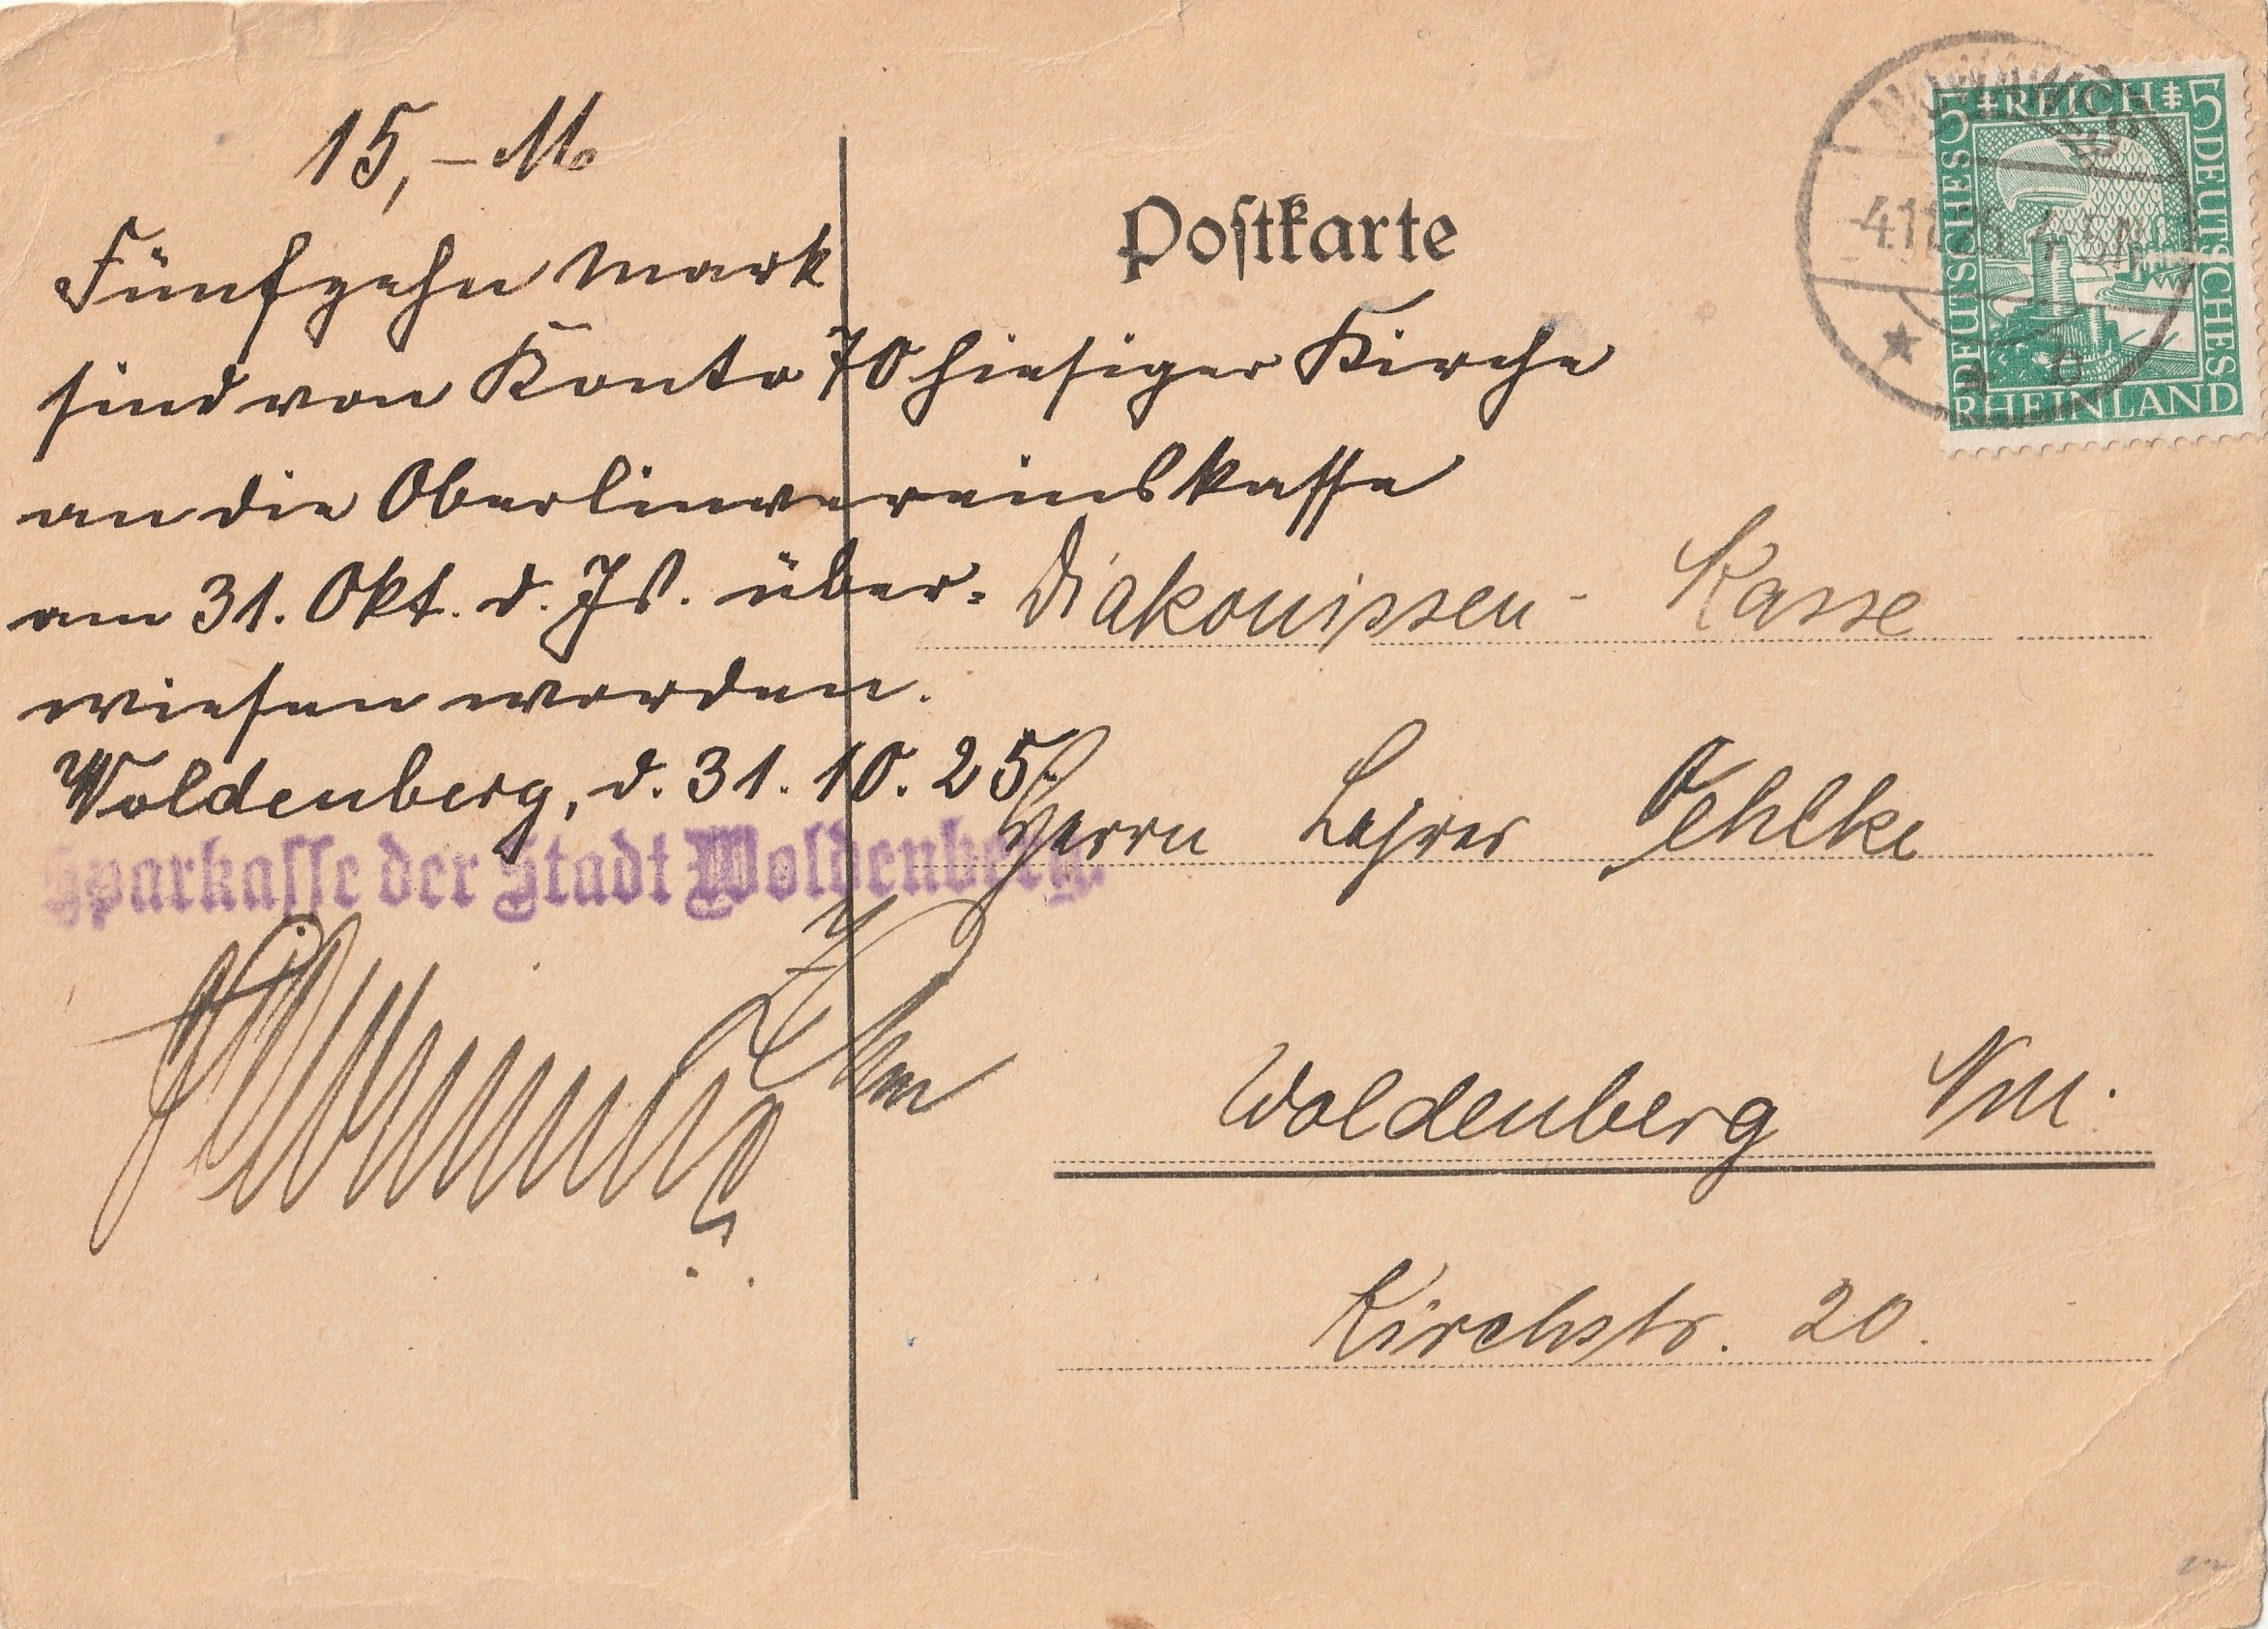 15,– M
Fünfzehn Mark
sind von Konto 70 hiesiger Kirche
an die Oberlinvereinskasse
am 31. Okt. d. Js. über-
wiesen worden.
Woldenberg, d. 31. 10. 25.
Sparkasse der Stadt Woldenberg.
Postkarte
DEUTSCHES REICH
5 5
DEUTSCHES
RHEINLAND
Diakonissen - Kasse
Herrn Lehrer Oehlke
Woldenberg Nm.
Kirchstr. 20.